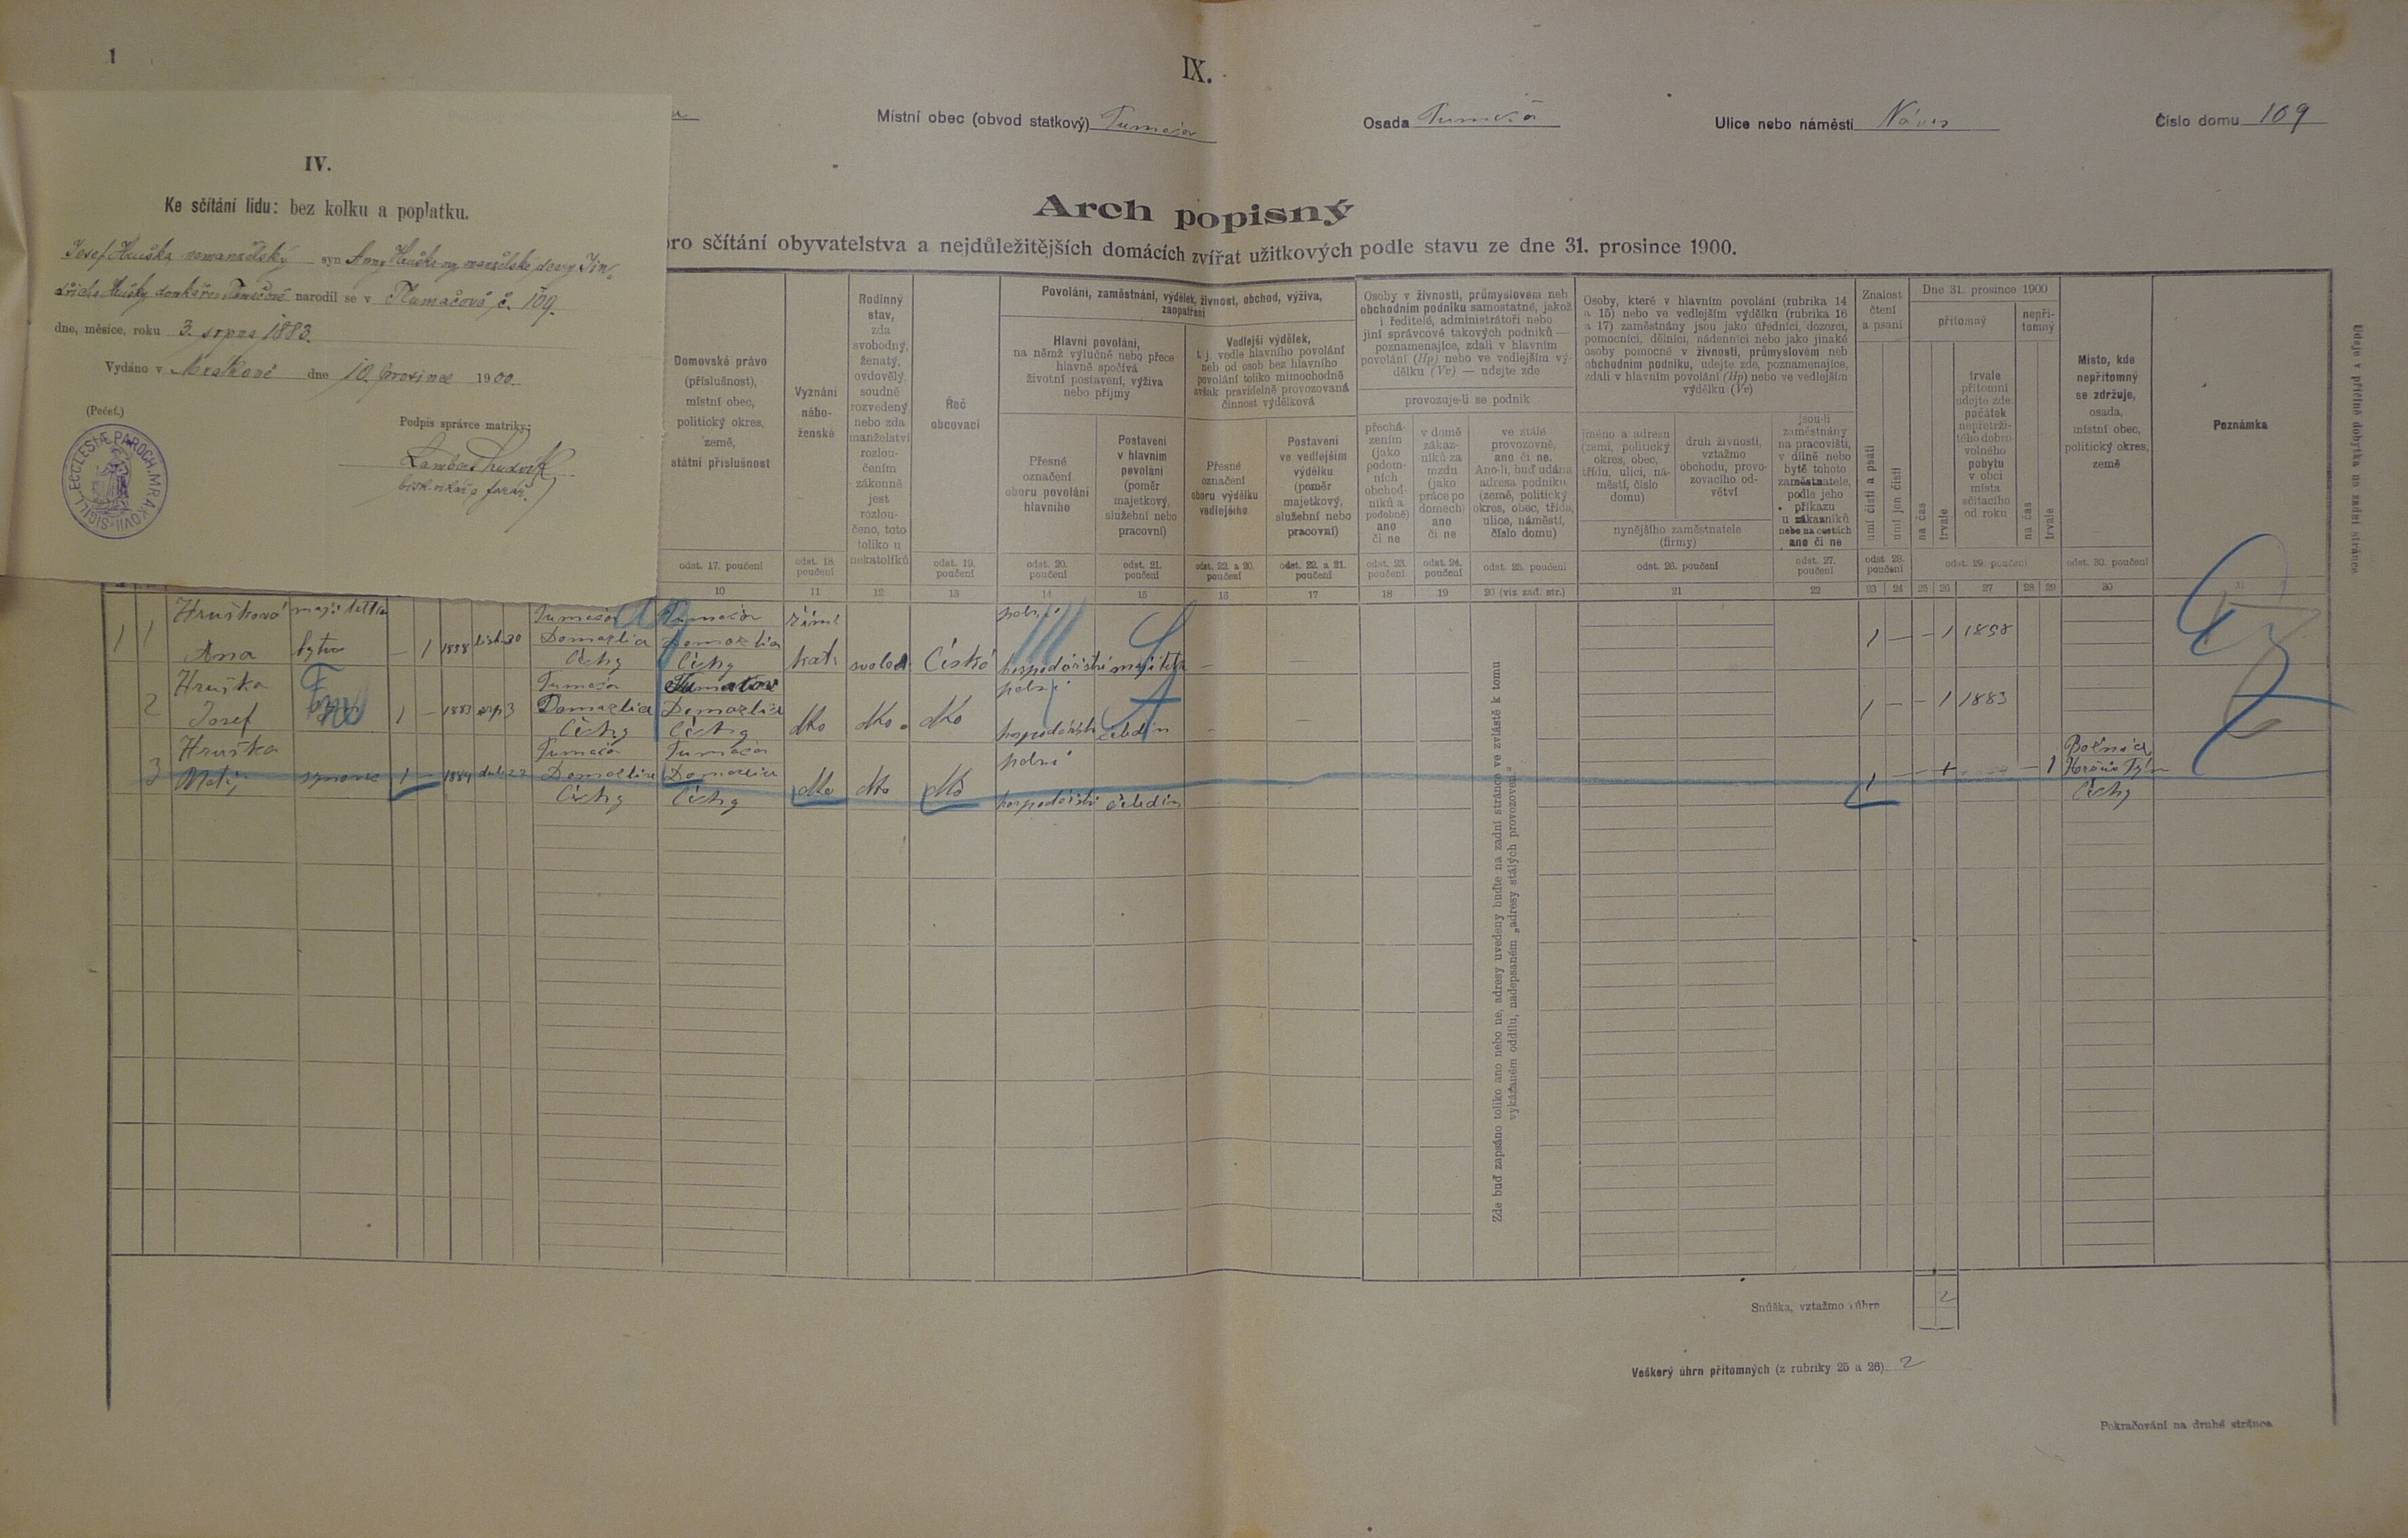 1
IX.
Místní obec (obvod statkový) Tumačov
Osada Tumačov
Ulice nebo náměstí Náves
Číslo domu 109
Arch popisný
pro sčítání obyvatelstva a nejdůležitějších domácích zvířat užitkových podle stavu ze dne 31. prosince 1900.
IV.
Ke sčítání lidu: bez kolku a poplatku.
Josef Hruška nemanželský syn Anny Hruškovy, manželské dcery Jin-
dřicha Hrušky narodil se v Tlumačově č. 109.
dne, měsíce, roku 3. srpna 1883.
Vydáno v Mrákově dne 10. prosince 1900
(Pečeť.)
Podpis správce matriky:
bisk. vikář a farář.
SIGILL. ECCLESIÆ PAROCH. MRAKOVII
Domovské právo
(příslušnost),
místní obec,
politický okres,
země,
státní příslušnost
odst. 17. poučení
Vyznání
nábo-
ženské
odst. 18.
poučení
Rodinný
stav,
zda
svobodný,
ženatý,
ovdovělý,
soudně
rozvedený
nebo zda
manželství
rozlou-
čením
zákonně
jest
rozlou-
čeno, toto
toliko u
nekatolíků
Řeč
obcovací
odst. 19.
poučení
Povolání, zaměstnání, výdělek, živnost, obchod, výživa,
zaopatření
Hlavní povolání,
na němž výlučně nebo přece
hlavně spočívá
životní postavení, výživa
nebo příjmy
Přesné
označení
oboru povolání
hlavního
odst. 20.
poučení
Postavení
v hlavním
povolání
(poměr
majetkový,
služební nebo
pracovní)
odst. 21.
poučení
Vedlejší výdělek,
t. j. vedle hlavního povolání
neb od osob bez hlavního
povolání toliko mimochodně
avšak pravidelně provozovaná
činnost výdělková
Přesné
označení
oboru výdělku
vedlejšího
odst. 22. a 20.
poučení
Postavení
ve vedlejším
výdělku
(poměr
majetkový,
služební nebo
pracovní)
odst. 22. a 21.
poučení
Osoby v živnosti, průmyslovém neb
obchodním podniku samostatné, jakož
i ředitelé, administrátoři nebo
jiní správcové takových podniků —
poznamenajíce, zdali v hlavním
povolání (Hp) nebo ve vedlejším vý-
dělku (Vv) — udejte zde
provozuje-li se podnik
přechá-
zením
(jako
podom-
ních
obchod-
níků a
podobně)
ano
či ne
odst. 23.
poučení
v domě
zákaz-
níků za
mzdu
(jako
práce po
domech)
ano
či ne
odst. 24.
poučení
ve stálé
provozovně,
ano či ne.
Ano-li, buď udána
adresa podniku
(země, politický
okres, obec, třída,
ulice, náměstí,
číslo domu)
odst. 25. poučení
Osoby, které v hlavním povolání (rubrika 14
a 15) nebo ve vedlejším výdělku (rubrika 16
a 17) zaměstnány jsou jako úředníci, dozorci,
pomocníci, dělníci, nádenníci nebo jako jinaké
osoby pomocné v živnosti, průmyslovém neb
obchodním podniku, udejte zde, poznamenajíce,
zdali v hlavním povolání (Hp) nebo ve vedlejším
výdělku (Vv)
jméno a adresu
(zemi, politický
okres, obec,
třídu, ulici, ná-
městí, číslo
domu)
druh živnosti,
vztažmo
obchodu, provo-
zovacího od-
větví
nynějšího zaměstnatele
(firmy)
odst. 26. poučení
jsou-li
zaměstnány
na pracovišti,
v dílně nebo
bytě tohoto
zaměstnatele,
podle jeho
příkazu
u zákazníků
nebo na cestách
ano či ne
odst. 27.
poučení
Znalost
čtení
a psaní
umí čísti a psáti
umí jen čísti
odst. 28.
poučení
Dne 31. prosince 1900
přítomný
nepří-
tomný
na čas
trvale
trvale
přítomní
udejte zde
počátek
nepřetrži-
tého dobro-
volného
pobytu
v obci
místa
sčítacího
od roku
na čas
trvale
odst. 29. poučení
Místo, kde
nepřítomný
se zdržuje,
osada,
místní obec,
politický okres,
země
odst. 30. poučení
Poznámka
10 11 12 13 14 15 16 17 18 19 20 (viz zad. str.) 21 22 23 24 25 26 27 28 29 30 31
1 1 Hrušková majitelka Tumačov Tumačov řím. polní
Ana bytu — 1 1858 list. 30 Domažlice Domažlice kat. svobod. České hospodářství majitelka — — 1 — — 1 1858
Čechy Čechy
2 Hruška Tumačov Tumačov polní
Josef 1 — 1883 srp. 3 Domažlice Domažlice dtto dtto dtto hospodářství čeledín — — 1 — — 1 1883
Čechy Čechy
3 Hruška Tumačov Tumačov polní
Matěj synovec 1 — 1884 22 Domažlice Domažlice dtto dtto dtto hospodářství čeledín 1 — — — 1 Horšův Týn
Čechy Čechy Čechy
Zde buď zapsáno toliko ano nebo ne, adresy uvedeny buďte na zadní stránce ve zvláště k tomu
vykázaném oddílu, nadepsaném „adresy stálých provozoven“
Údaje v příčině dobytka na zadní stránce
Snůška, vztažmo úhrn 2
Veškerý úhrn přítomných (z rubriky 25 a 26) 2
Pokračování na druhé stránce